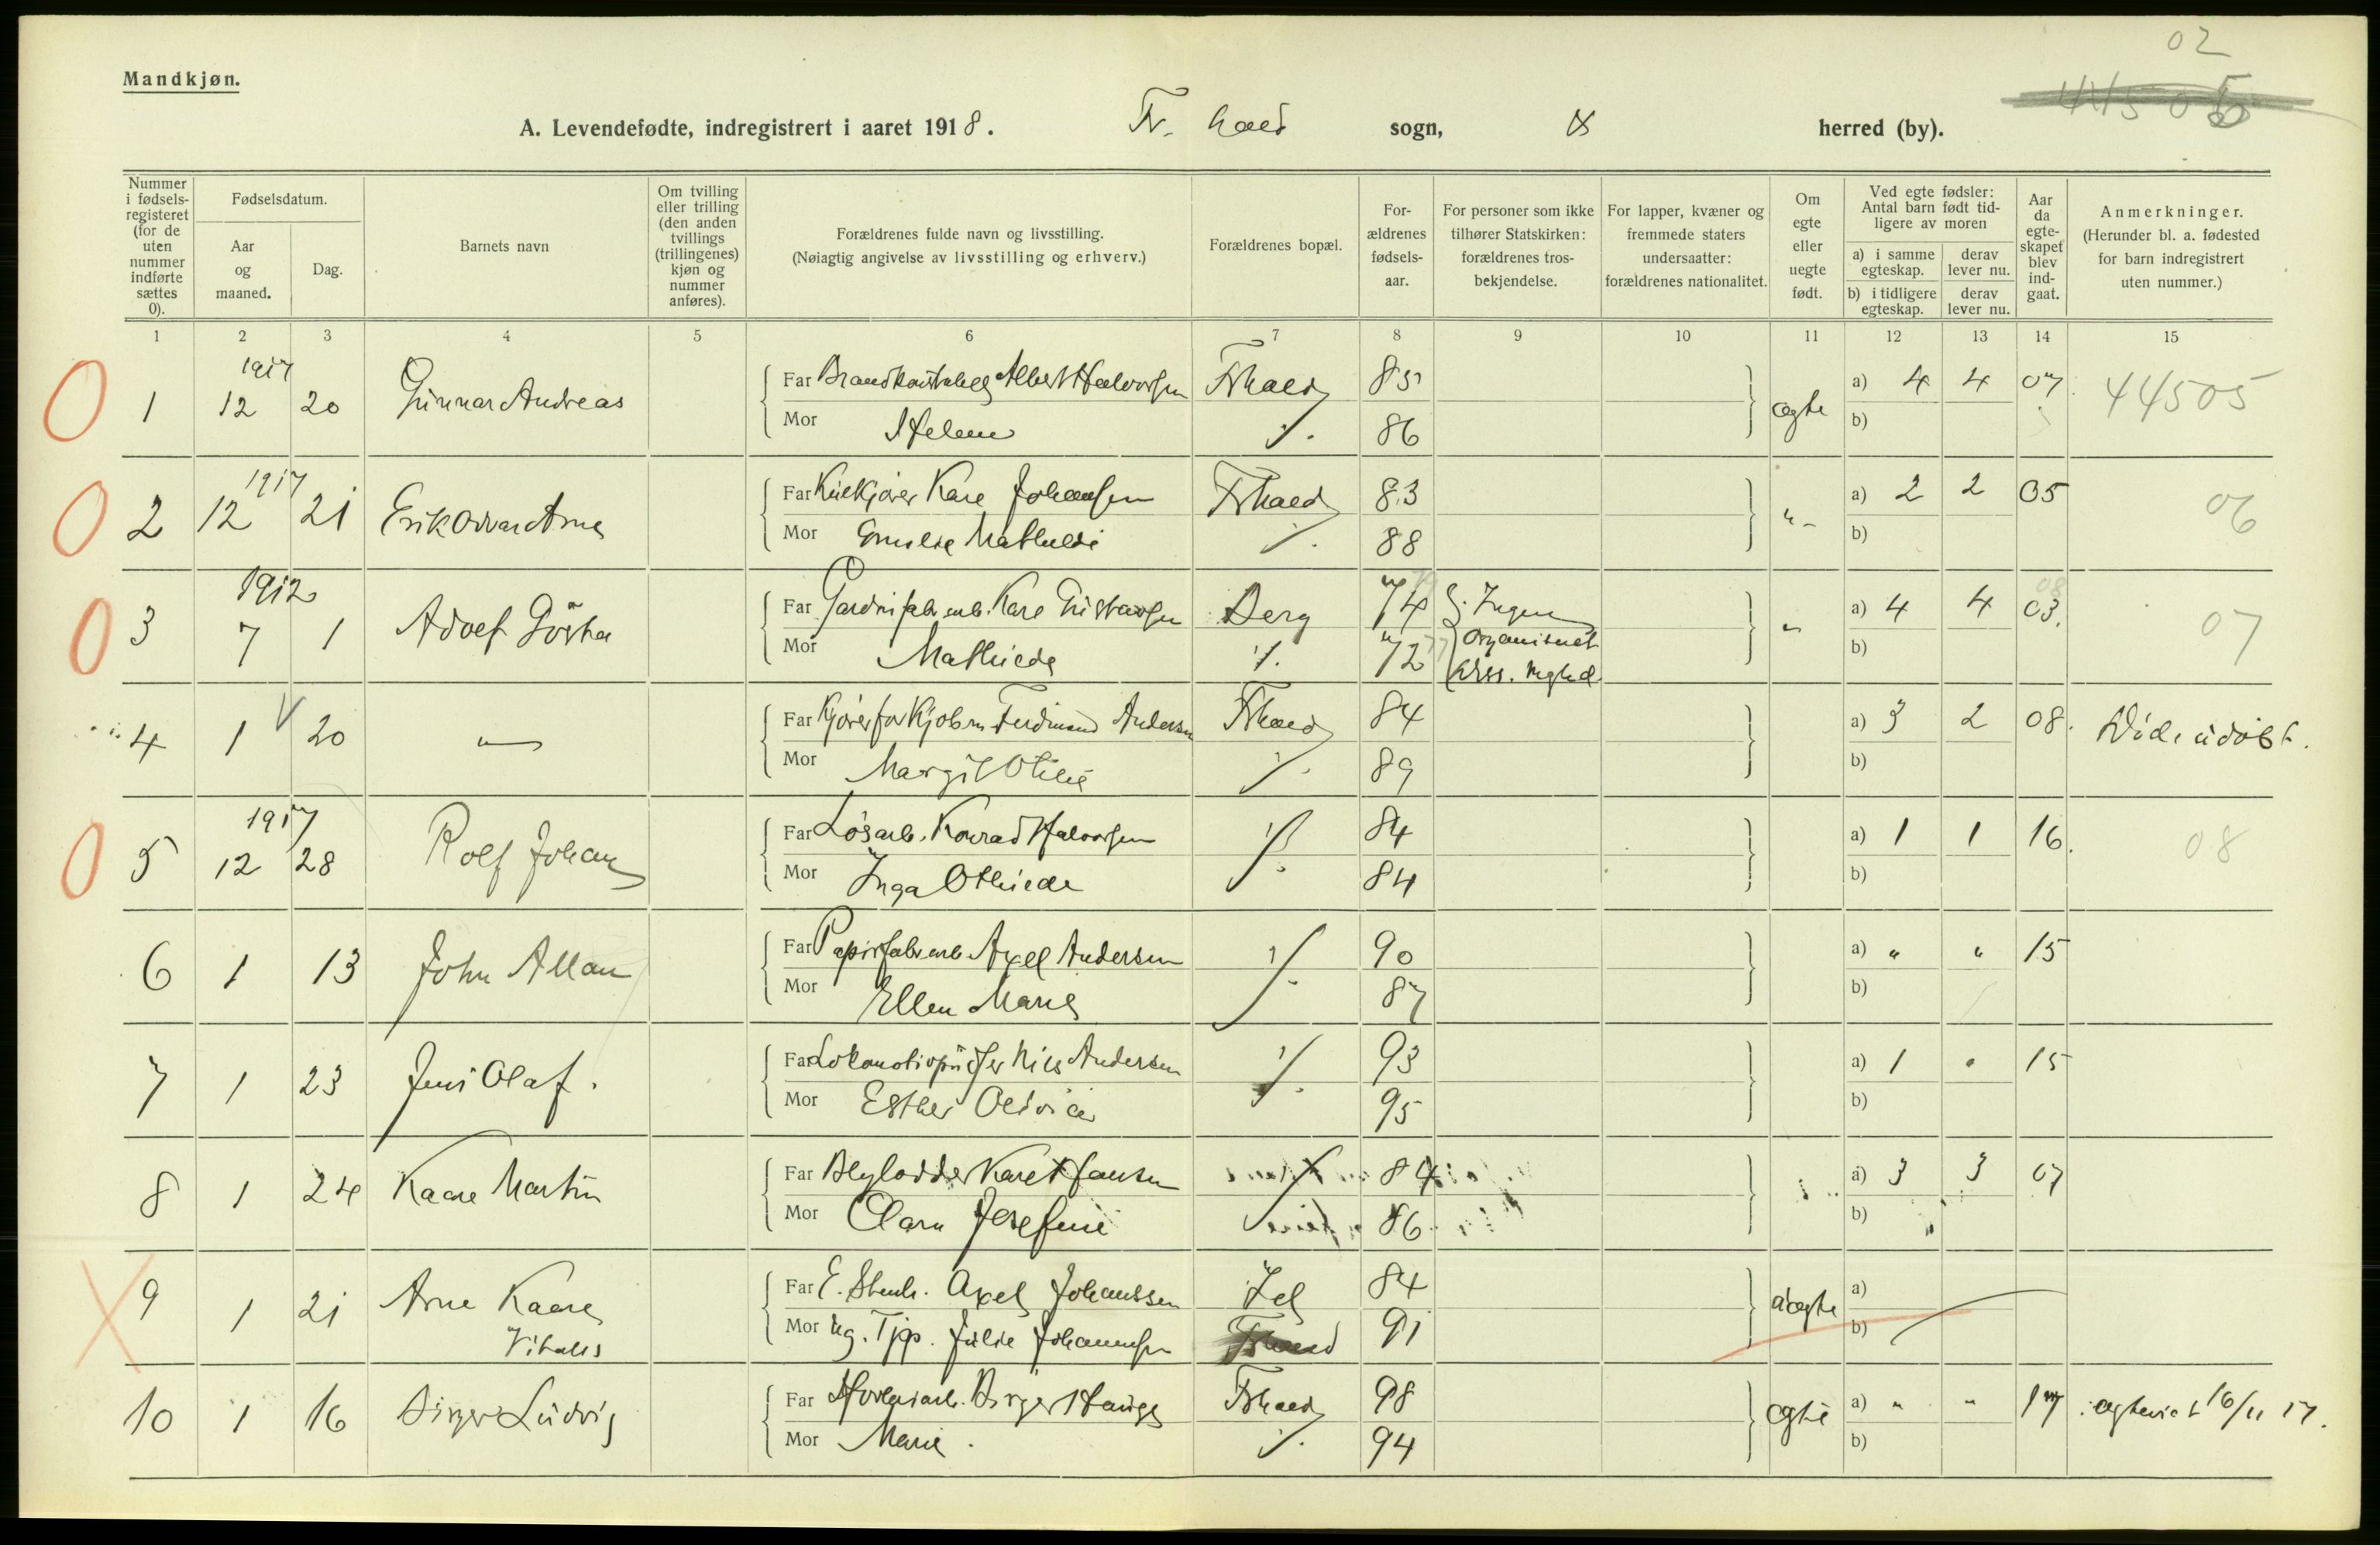 02
Mandkjøn.
A. Levendefødte, indregistrert i aaret 1918. Fr. hald sogn, herred (by).
Nummer i fødselsregisteret (for de uten nummer indførte sættes 0).
Fødselsdatum.
Aar og maaned.
Dag.
Barnets navn
Om tvilling eller trilling (den anden tvillings (trillingenes) kjøn og nummer anføres).
Forældrenes fulde navn og livsstilling.
(Nøiagtig angivelse av livsstilling og erhverv.)
Forældrenes bopæl.
Forældrenes fødselsaar.
For personer som ikke tilhører Statskirken: forældrenes trosbekjendelse.
For lapper, kvæner og fremmede staters undersaatter: forældrenes nationalitet.
Om egte eller uegte født.
Ved egte fødsler: Antal barn født tidligere av moren
a) i samme egteskap. derav lever nu.
b) i tidligere egteskap. derav lever nu.
Aar da egteskapet blev indgaat.
Anmerkninger.
(Herunder bl. a. fødested for barn indregistrert uten nummer.)
1 2 3 4 5 6 7 8 9 10 11 12 13 14 15
1 1917 12 20 Gunnar Andreas Far Albert Halvorsen Frhald 85 a) 4 4 07 44505
Mor Helene 86 egte b)
2 1917 12 21 Erik Oddvar Arne Far Johansen Frhald 83 a) 2 2 05 06
Mor Emilie Mathilde 88 b)
3 1912 7 1 Adolf Gösta Far Gardinfabr.arb. Gustavsen Berg 74 Ingen a) 4 4 03. 07
Mor Mathilde 72 organiseret b)
4 1 20 Far Kjører for Kjøbm. Ferdinand Andersen Frhald 84 a) 3 2 08.
Mor Margit Otilie 89 b)
5 1917 12 28 Rolf Johan Far Løsarb. Konrad Halvorsen 84 a) 1 1 16. 08
Mor Inga Othilde 84 b)
6 1 13 John Allan Far Papirfabr.arb. Axel Andersen 90 a) " " 15
Mor Ellen Marie 87 b)
7 1 23 Jens Olaf. Far Lokomotivpusser Nils Andersen 93 a) 1 15
Mor Esther 95 b)
8 1 24 Kaare Martin Far Hansen 84 a) 3 3 07
Mor Clara Josefine 86 b)
9 1 21 Arne Kaare Far E. Stenh. Axel Johanssen 84 a)
Mor Ug. Tjp. Julie Johannesen Frhald 91 uegte b)
10 1 16 Birger Ludvig Far Birger Hauge Frhald 98 egte a) " " 17 egteviet 16/11 17.
Mor Marie. 94 b)